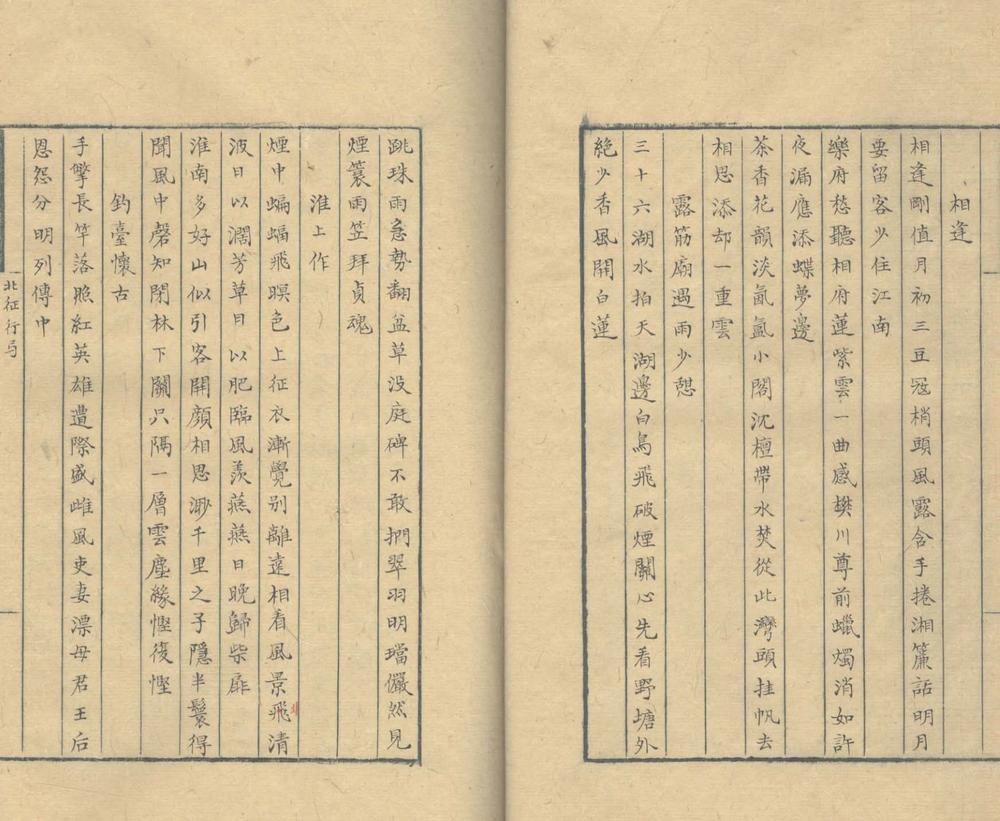 相逢
相逢剛值月初三豆冦梢頭風露含手捲湘簾話明月
要留客少住江南
樂府愁聽相府蓮紫雲一曲感樊川尊前蠟燭消如許
夜漏應添蝶夢邊
茶香花韻淡氤氳小閣沈檀帶水焚從此灣頭挂帆去
相思添却一重雲
露筋廟遇雨少憩
三十六湖水拍天湖邊白鳥飛破煙關心先看野塘外
絶少香風開白蓮
跳珠雨急勢翻盆草没庭碑不敢捫翠羽明璫儼然見
煙蓑雨笠拜貞魂
淮上作
煙中蝙蝠飛暝色上征衣漸覺别離遠相看風景飛清
波日以濶芳草日以肥臨風羨燕燕日晚歸柴扉
淮南多好山似引客開顏相思渺千里之子隱半鬟得
聞風中磬知閉林下關只隔一層雲塵緣慳復慳
釣臺懷古
手擎長竿落照紅英雄遭際盛雌風吏妻漂母君王后
恩怨分明列傳中
北征行